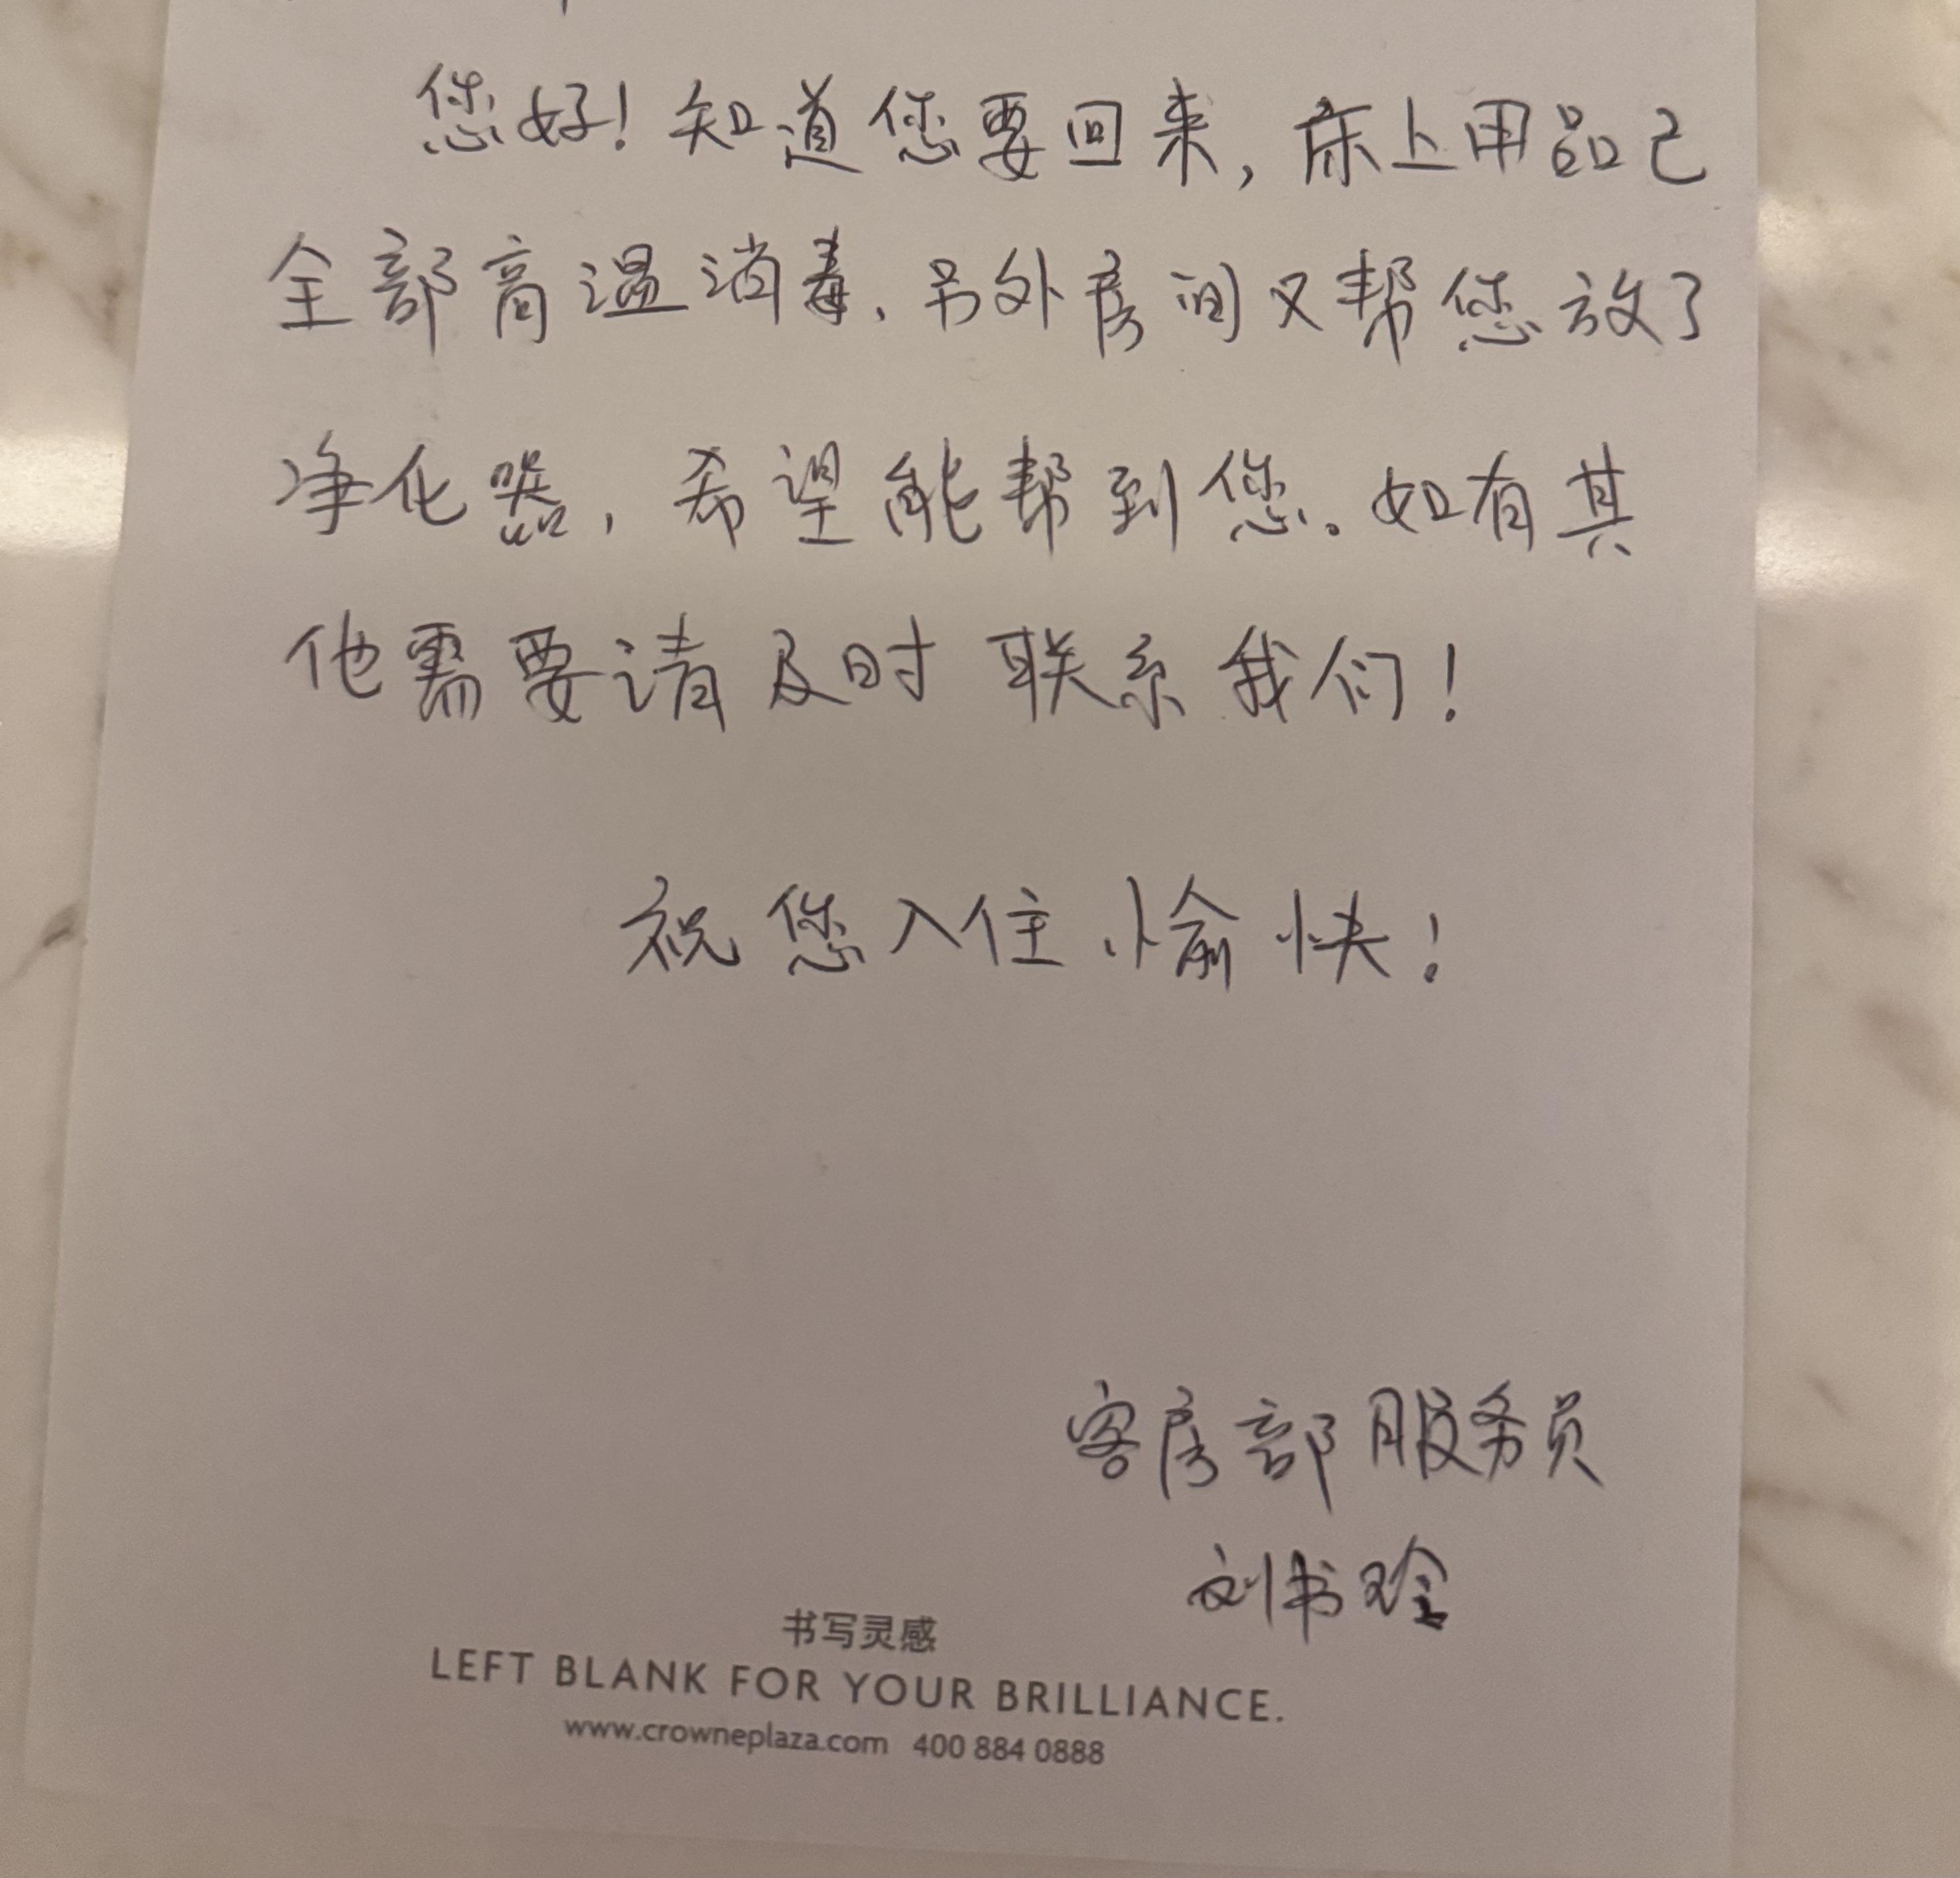 您好！知道您要回来，床上用品已
全部高温消毒，另外房间又帮您放了
净化器，希望能帮到您。如有其
他需要请及时联系我们！
祝您入住愉快！
客房部服务员
刘书玲
书写灵感
LEFT BLANK FOR YOUR BRILLIANCE.
www.crowneplaza.com 400 884 0888